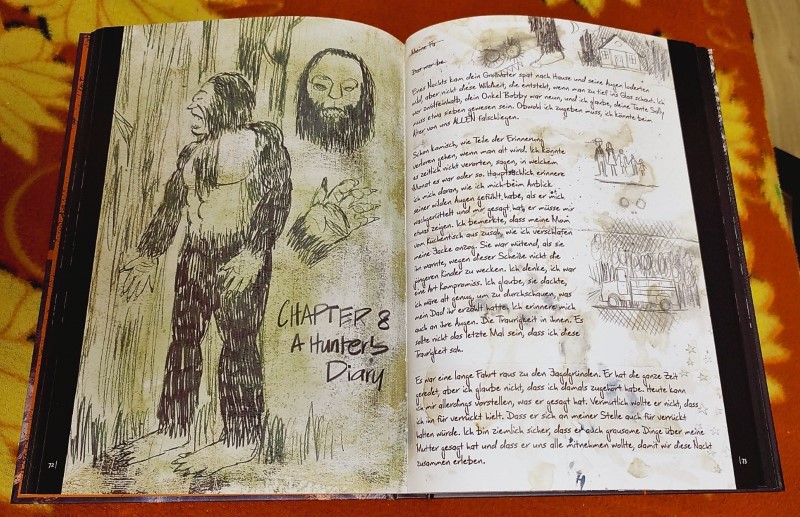 CHAPTER 8
A Hunter's
Diary
72 |
Meine Fr
Dearmarbe.
Eines Nachts kam dein Großvater spät nach Hause und seine Augen loderten
wild, aber nicht diese Wildheit, die entsteht, wenn man zu tief ins Glas schaut. Ich
war zwölfeinhalb, dein Onkel Bobby war neun, und ich glaube, deine Tante Sally
muss etwa sieben gewesen sein. Obwohl ich zugeben muss, ich könnte beim
Alter von uns ALLEN falschliegen.
Schon komisch, wie Teile der Erinnerung
verloren gehen, wenn man alt wird. Ich könnte
es zeitlich nicht verorten, sagen, in welchem
Monat es war oder so. Hauptsächlich erinnere
ich mich daran, wie ich mich beim Anblick
seiner wilden Augen gefühlt habe, als er mich
wachgerüttelt und mir gesagt hat, er müsse mir
etwas zeigen. Ich bemerkte, dass meine Mom
vom Küchentisch aus zusah, wie ich verschlafen
meine Jacke anzog. Sie war wütend, als sie
ihn warnte, wegen dieser Scheiße nicht die
jüngeren Kinder zu wecken. Ich denke, ich war
eine Art Kompromiss. Ich glaube, sie dachte,
ich wäre alt genug, um zu durchschauen, was
mein Dad ihr erzählt hatte. Ich erinnere mich
auch an ihre Augen. Die Traurigkeit in ihnen. Es
sollte nicht das letzte Mal sein, dass ich diese
Traurigkeit sah.
Es war eine lange Fahrt raus zu den Jagdgründen. Er hat die ganze Zeit
geredet, aber ich glaube nicht, dass ich damals zugehört habe. Heute kann
ich mir allerdings vorstellen, was er gesagt hat. Vermutlich wollte er nicht, dass
ich ihn für verrückt hielt. Dass er sich an meiner Stelle auch für verrückt
halten würde. Ich bin ziemlich sicher, dass er auch grausame Dinge über meine
Mutter gesagt hat und dass er uns alle mitnehmen wollte, damit wir diese Nacht
zusammen erleben.
| 73